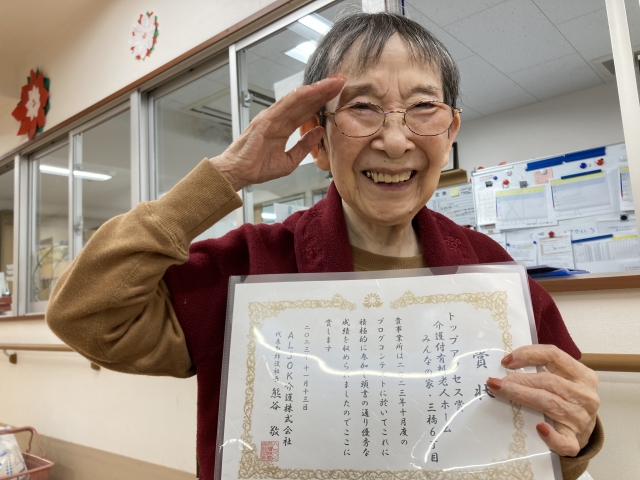 賞状
トップアクセス賞
介護付有料老人ホーム
みんなの家・三橋6丁目
貴事業所は二〇二三年十月度の
ブログコンテストに於いてこれに
積極的に参加し頭書の通り優秀な
成績を収められましたのでここに
賞します
二〇二三年十一月十三日
ALSOK介護株式会社
代表取締役社長 熊谷 敬